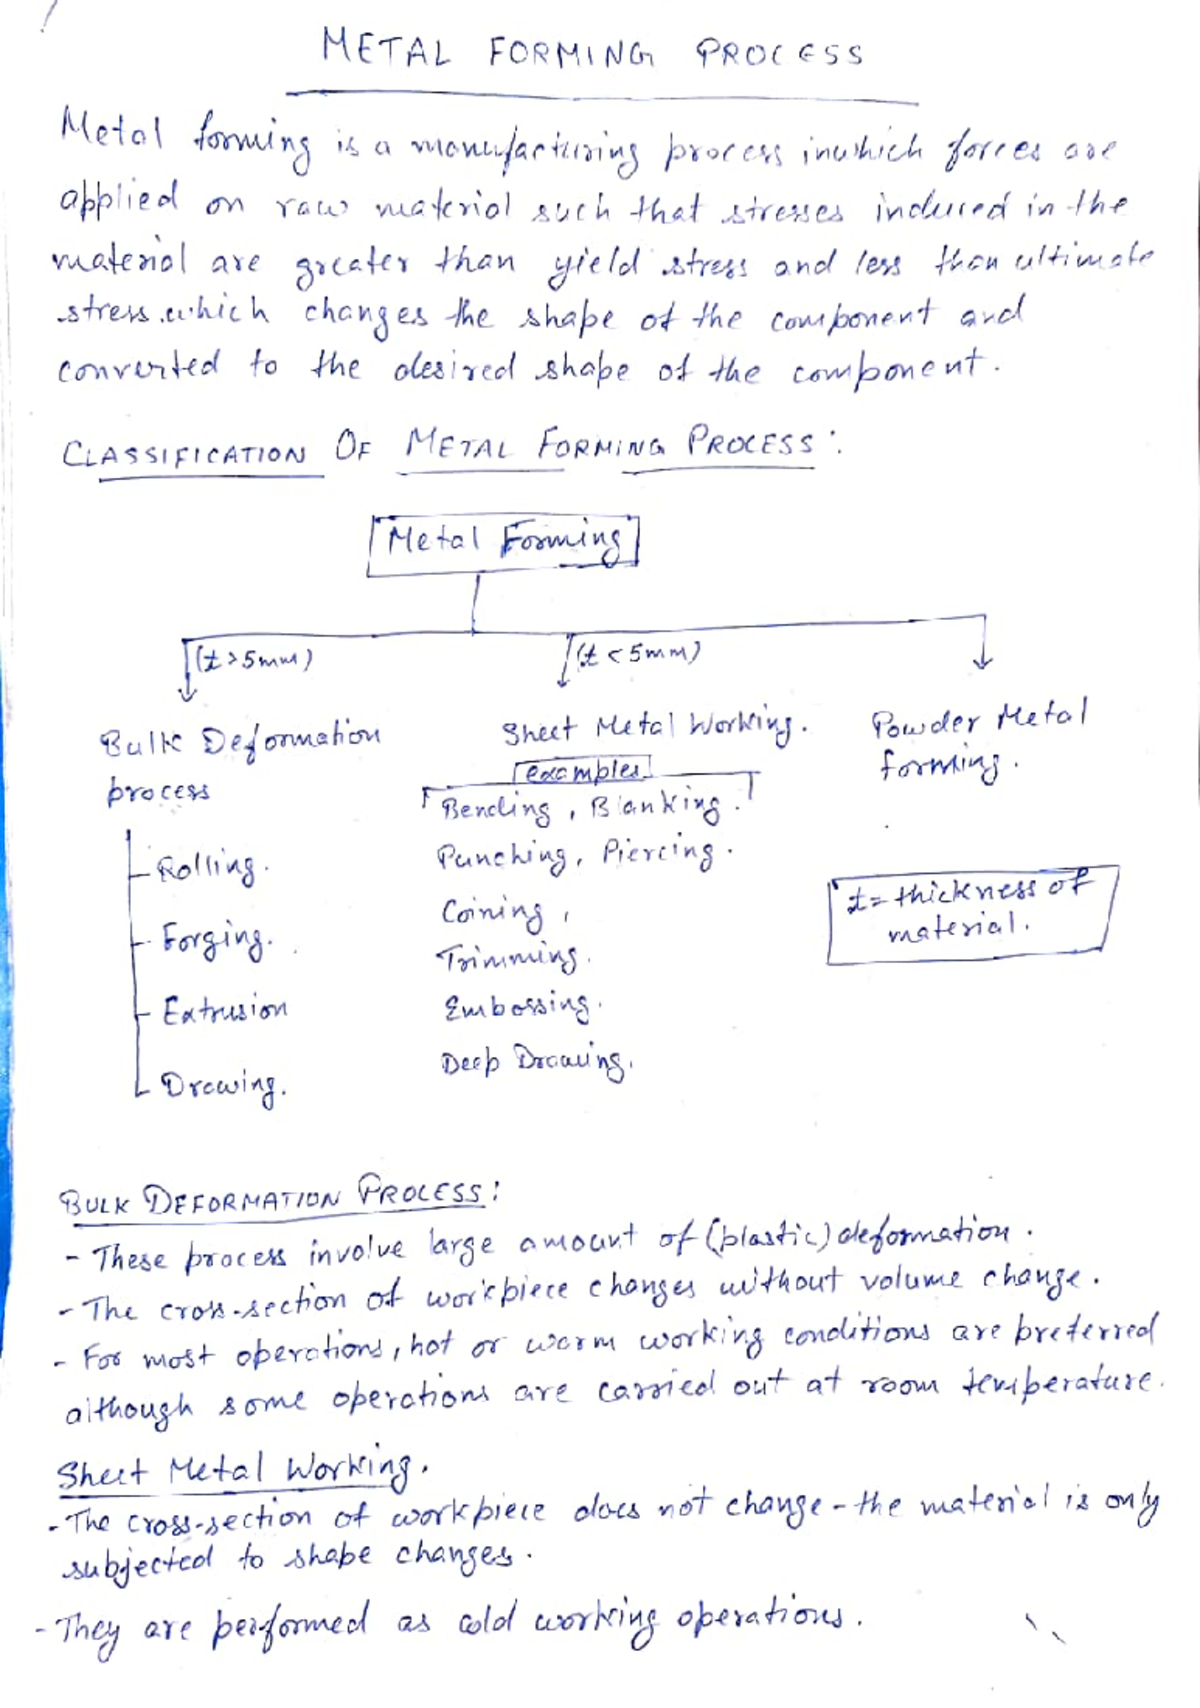 METAL FORMING PROCESS
Metal forming is a manufacturing process inwhich forces are
applied on raw material such that stresses induced in the
material are greater than yield stress and less than ultimate
stress.which changes the shape of the component and
converted to the desired shape of the component.
CLASSIFICATION OF METAL FORMING PROCESS:
Metal Forming
(t>5mm)
(t<5mm)
Bulk Deformation
process
Sheet Metal Working.
Powder Metal
forming.
examples
Rolling.
Forging.
Extrusion
Drawing.
Bending, Blanking.
Punching, Piercing.
Coining,
Trimming.
Embossing.
Deep Drawing.
t= thickness of
material.
BULK DEFORMATION PROCESS:
- These process involve large amount of (plastic) deformation.
- The cross-section of workpiece changes without volume change.
- For most operations, hot or warm working conditions are preferred
although some operations are carried out at room temperature.
Sheet Metal Working.
- The cross-section of workpiece does not change - the material is only
subjected to shape changes.
- They are performed as cold working operations.